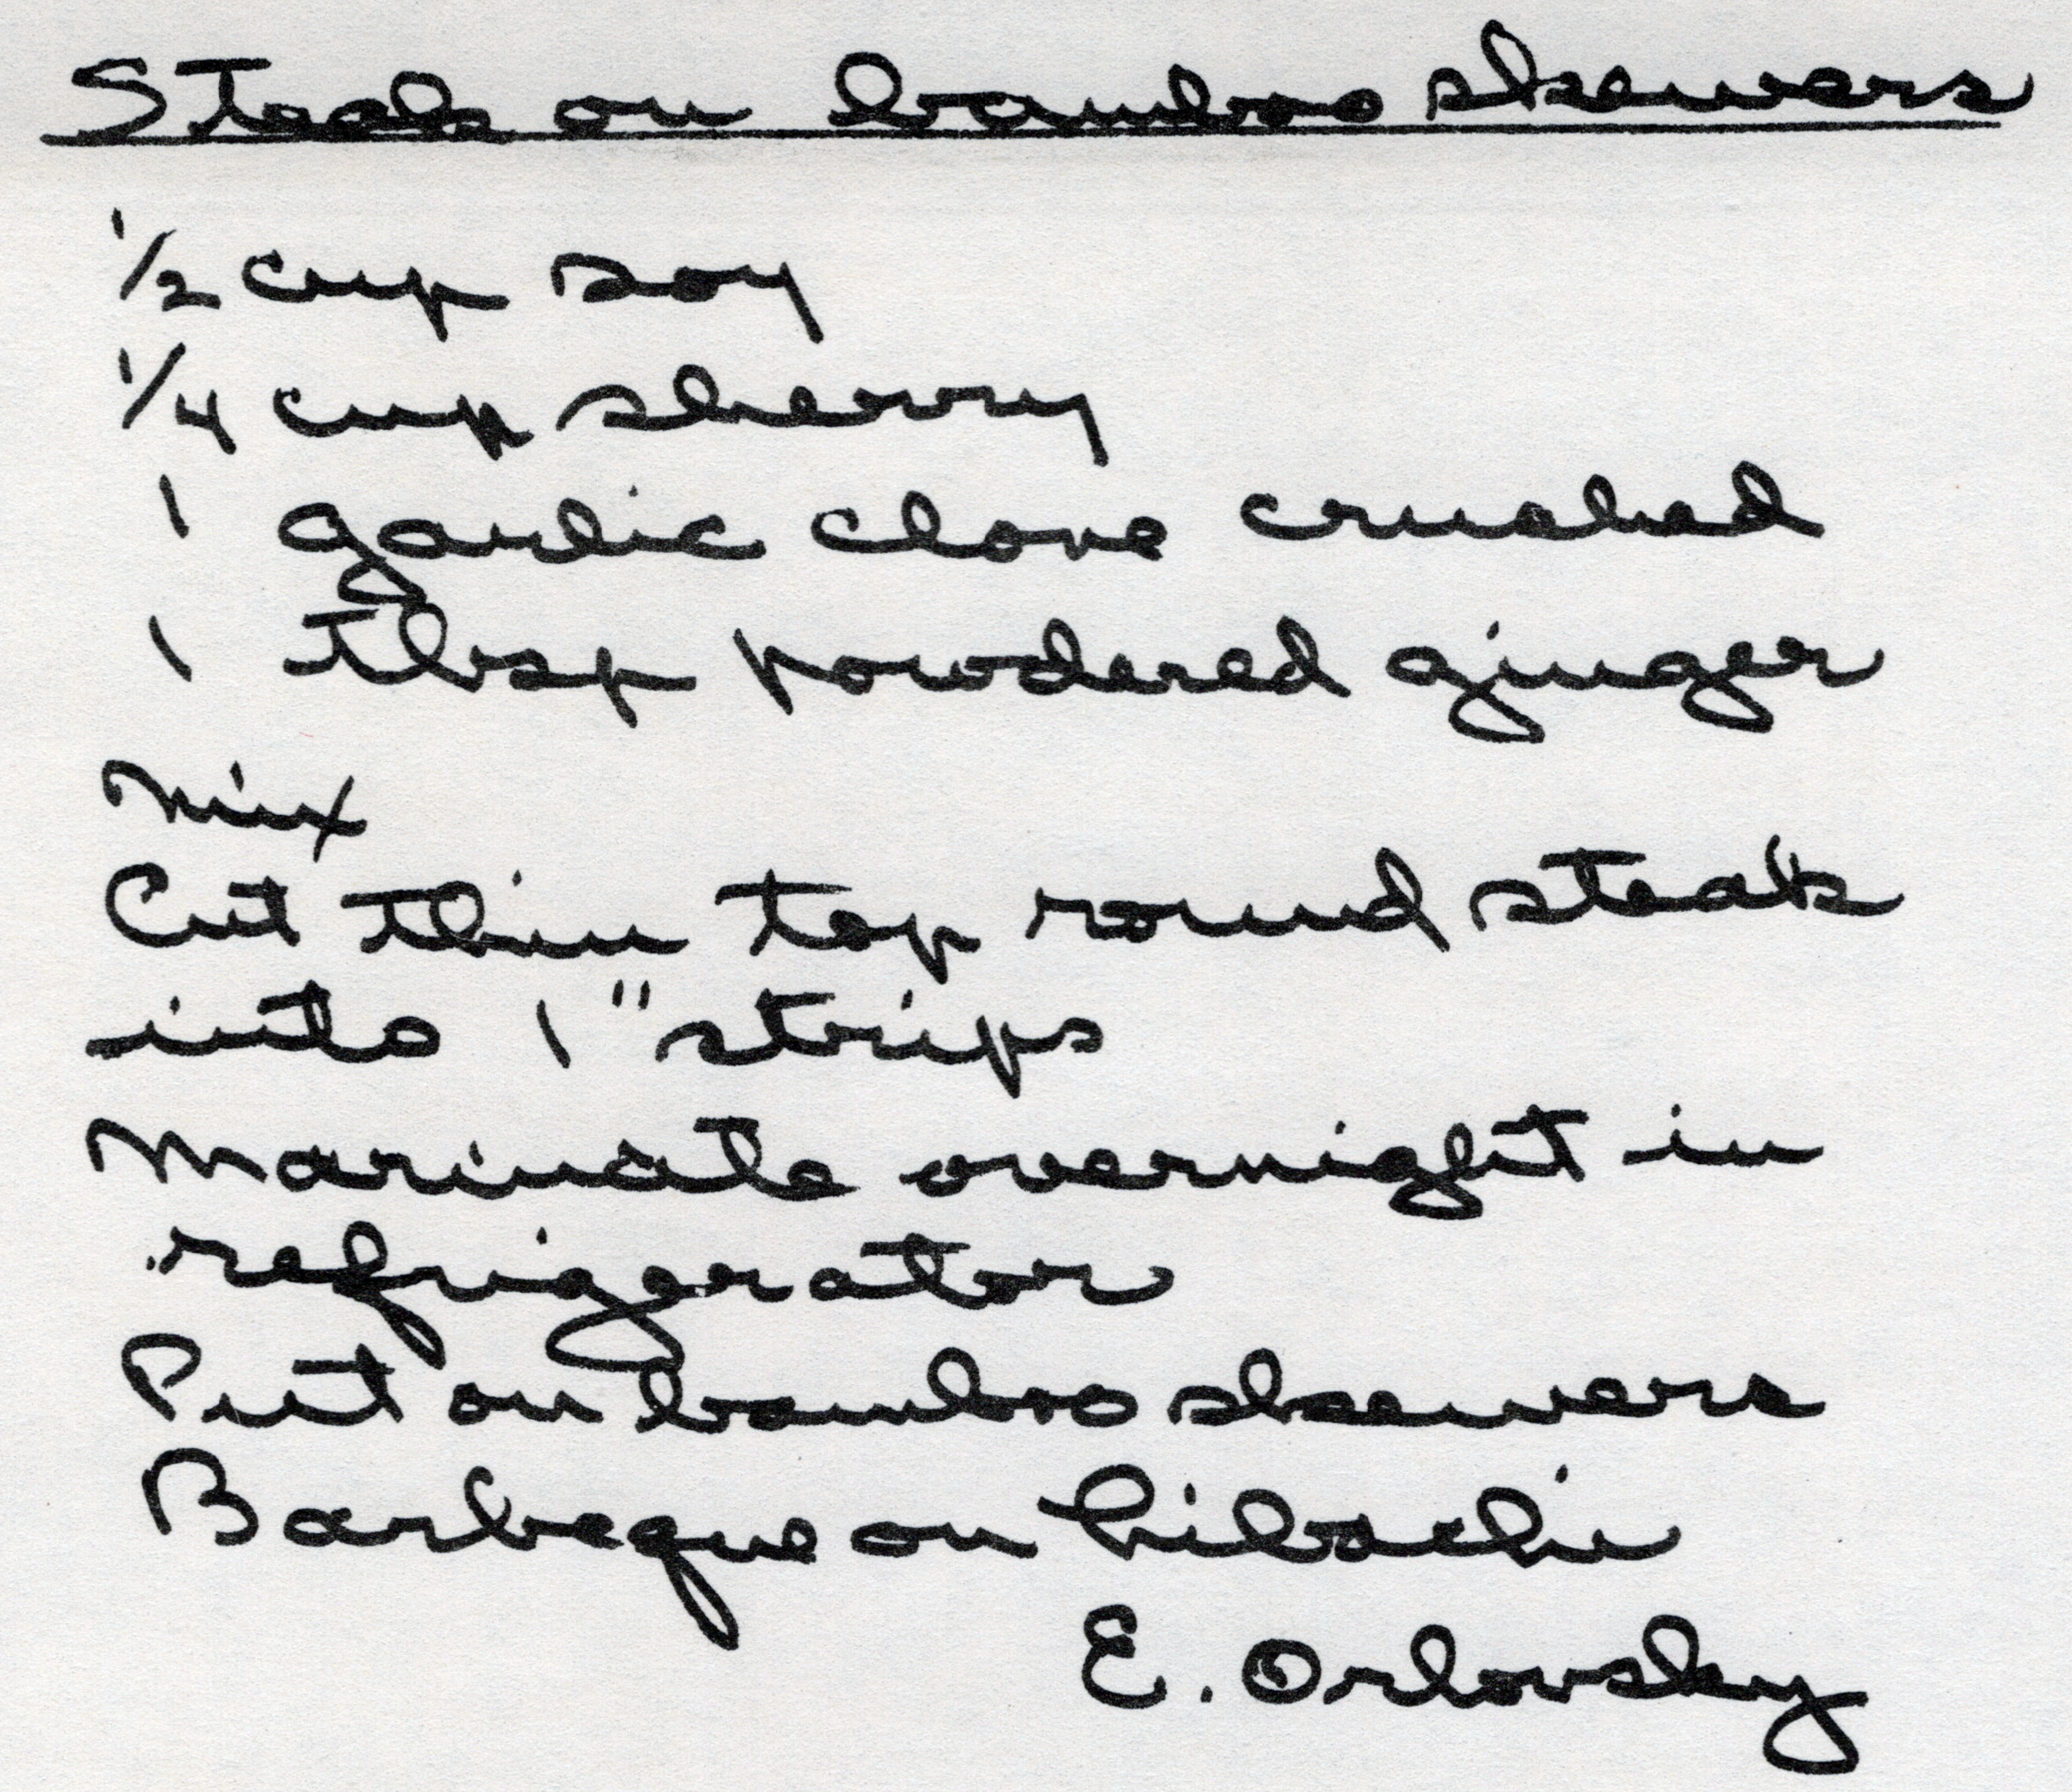 Steak on bamboo skewers
1/2 cup soy
1/4 cup sherry
1 garlic clove crushed
1 tbsp powdered ginger
Mix
Cut thin top round steak
into 1" strips
Marinate overnight in
refrigerator
Put on bamboo skewers
Barbeque on hibachi
E. Orlovsky